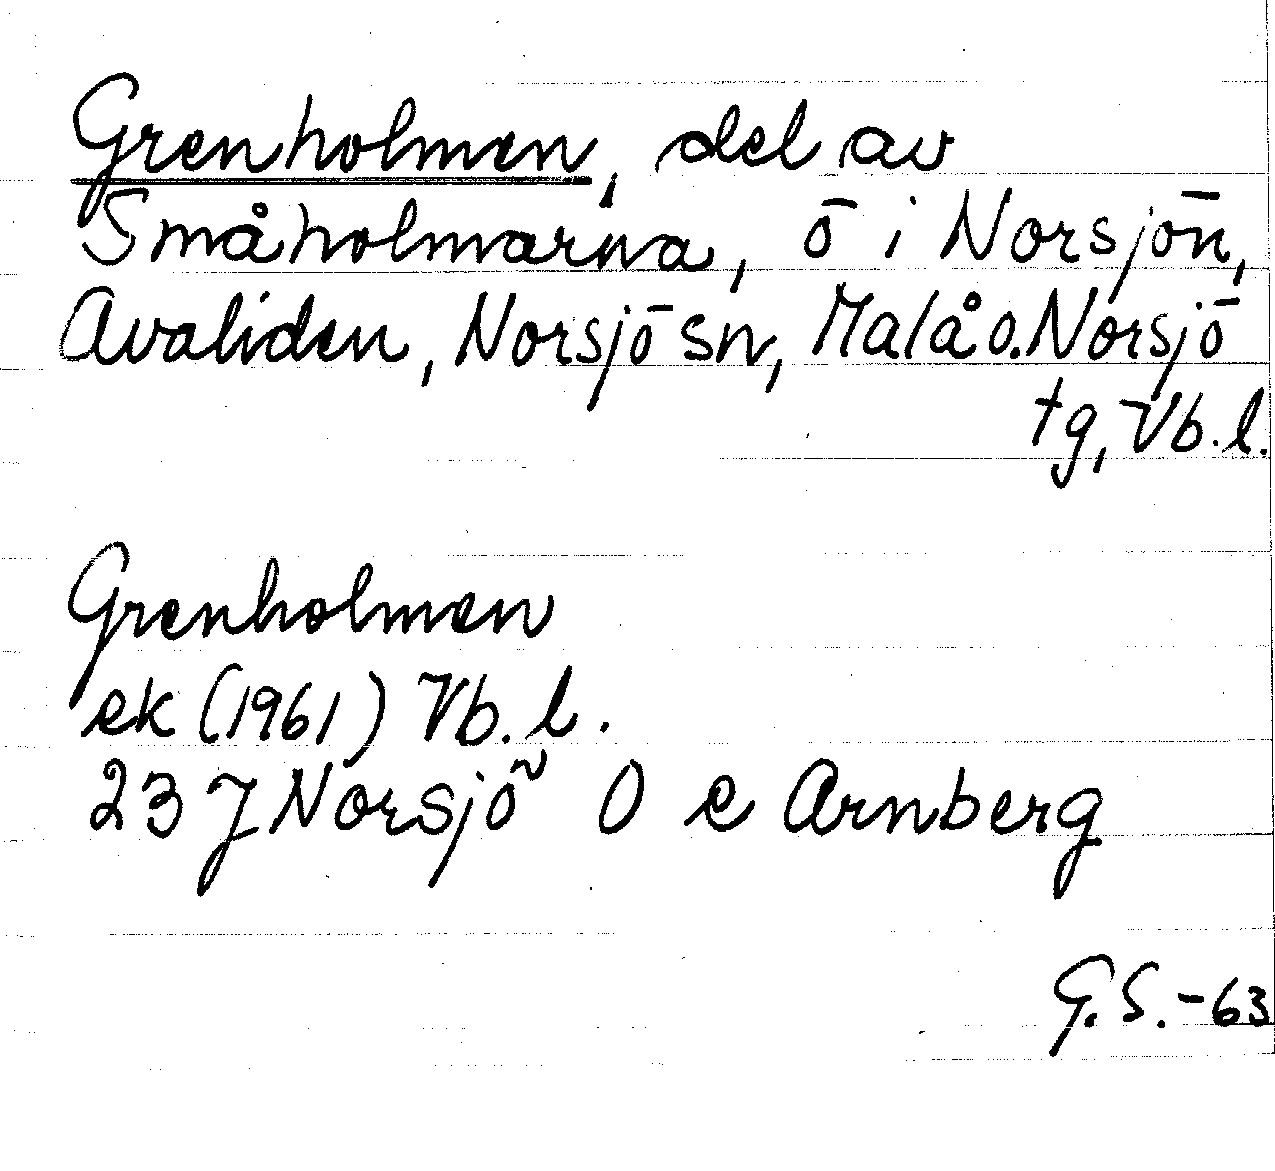 Grenholmen, del av
Småholmarna, ö i Norsjön,
Avaliden, Norsjö sn, Malå o. Norsjö
tg, Vb. l.
Grenholmen
ek (1961) Vb. l.
23 J Norsjö O e Arnberg
G. S. - 63